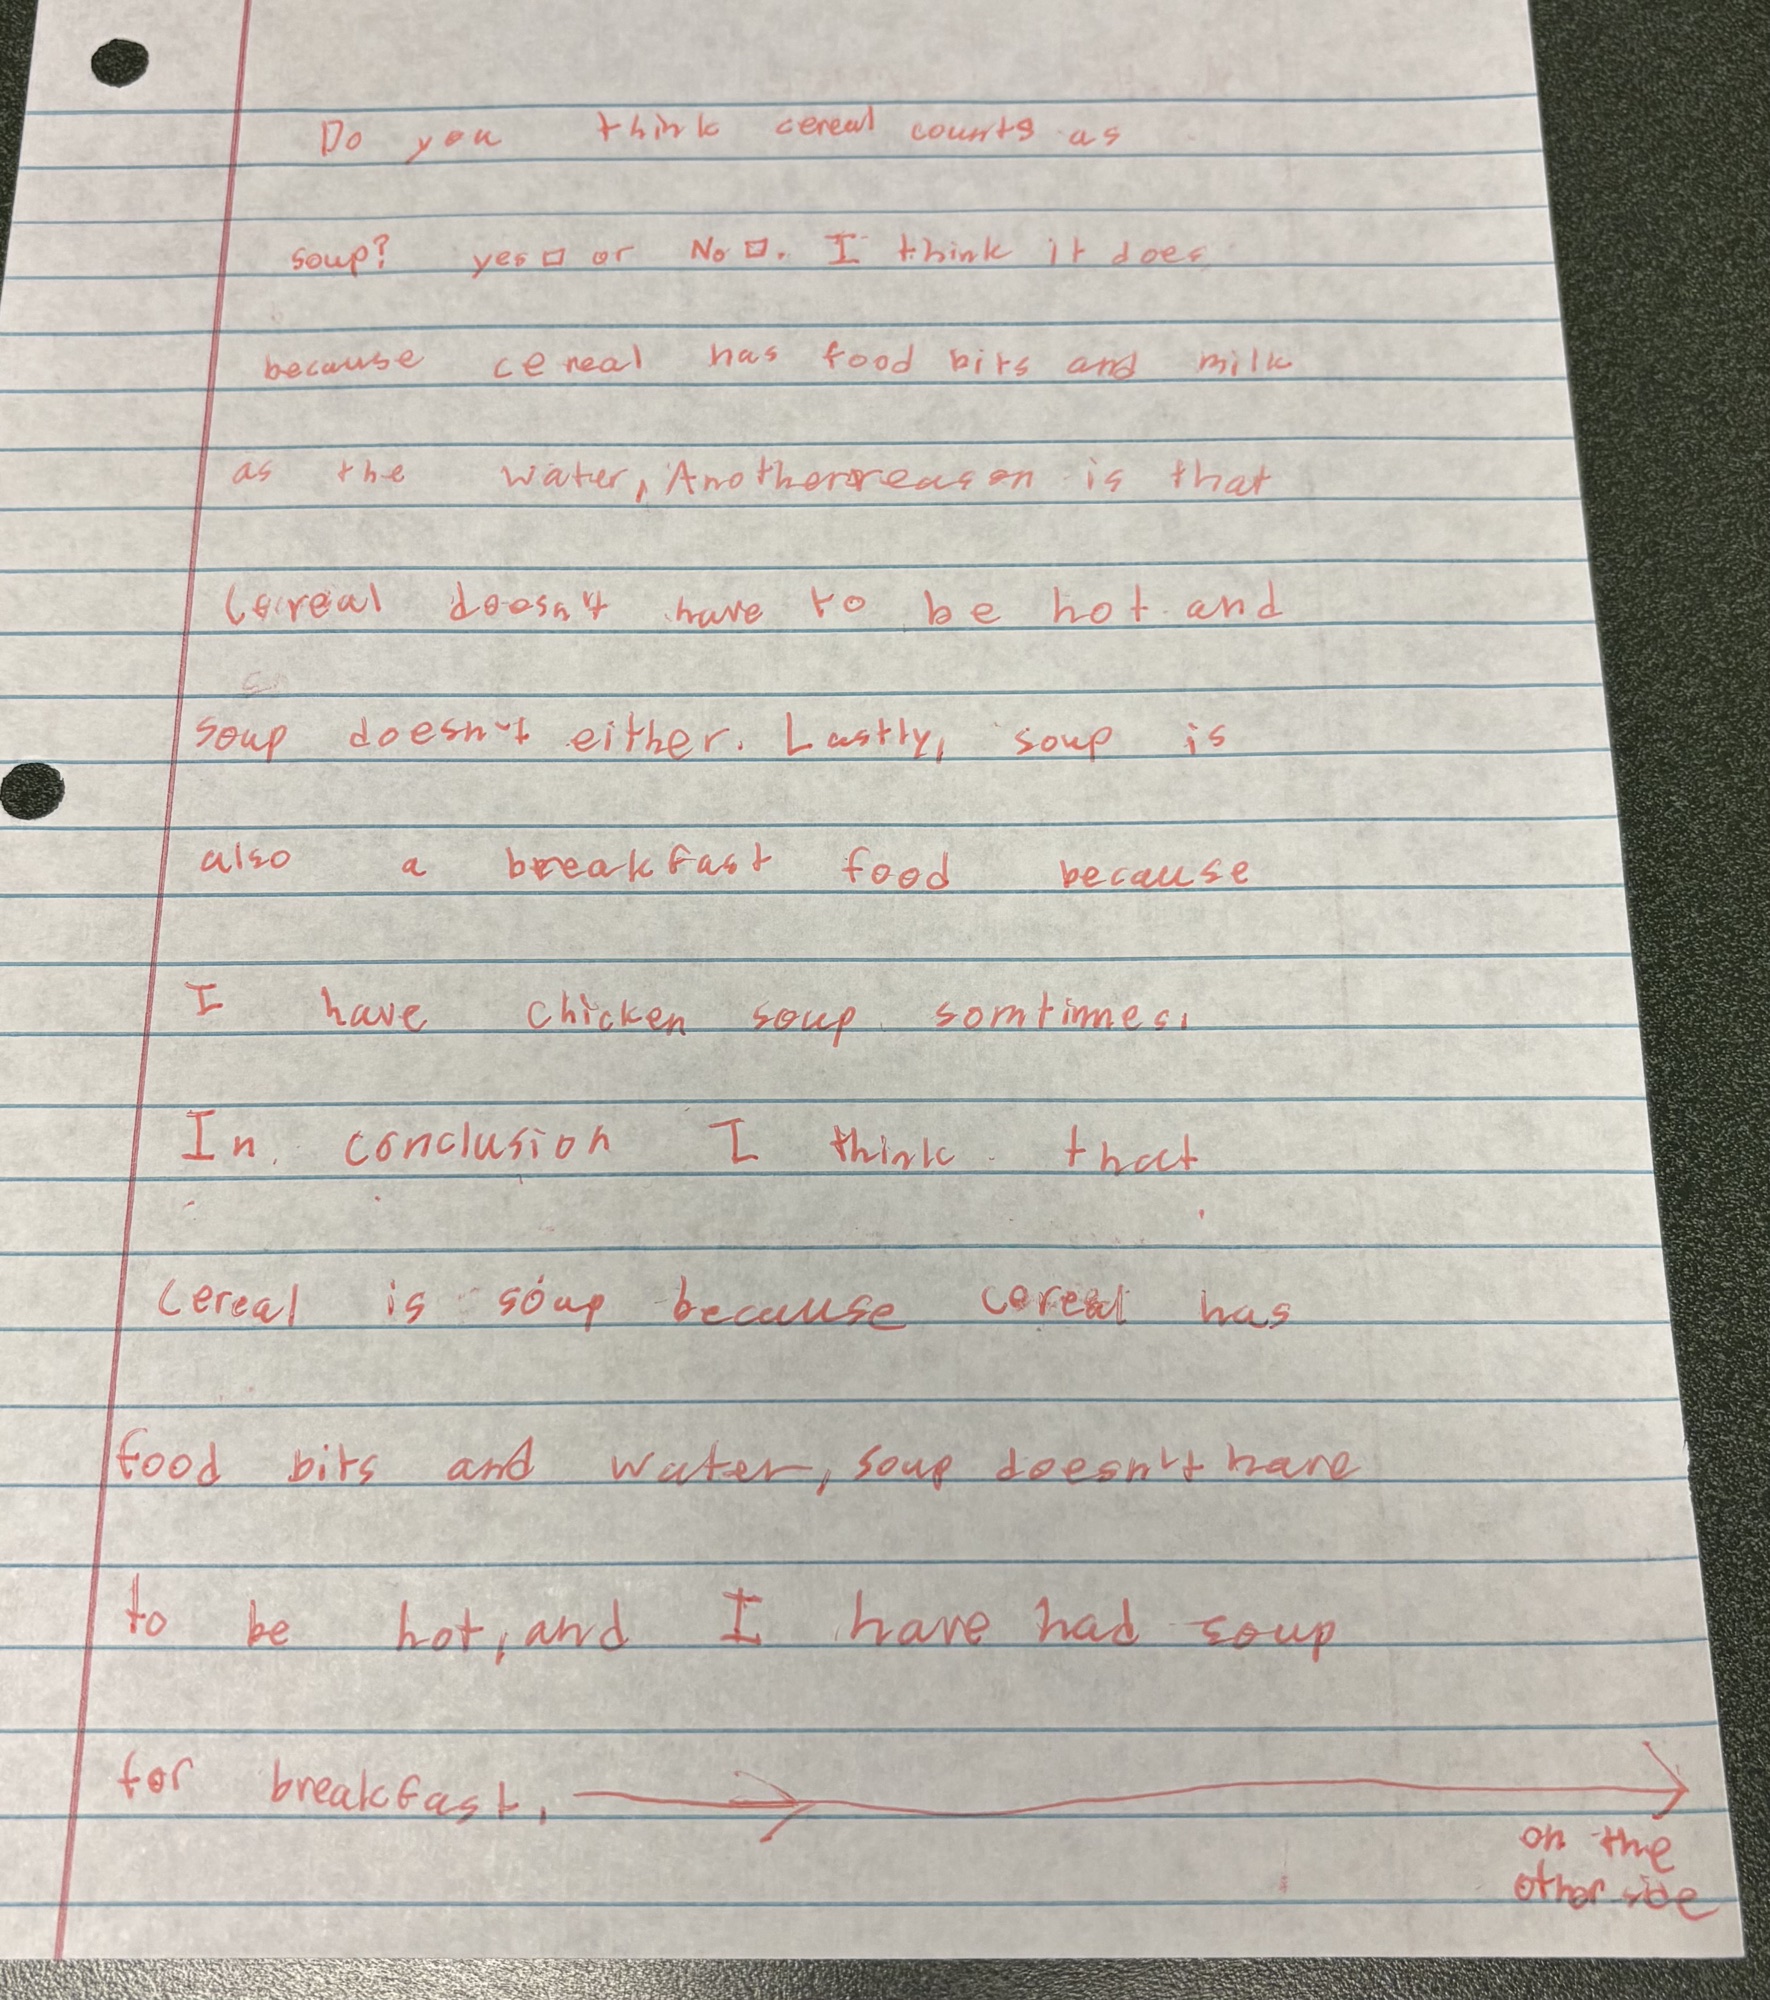 Do you think cereal counts as
soup? yes □ or No □. I think it does
because cereal has food bits and milk
as the water, Another reason is that
Cereal doesn't have to be hot and
soup doesn't either. Lastly, soup is
also a breakfast food because
I have chicken soup somtimes.
In conclusion I think that
cereal is soup because cereal has
food bits and water, soup doesn't have
to be hot, and I have had soup
for breakfast.
on the
other side